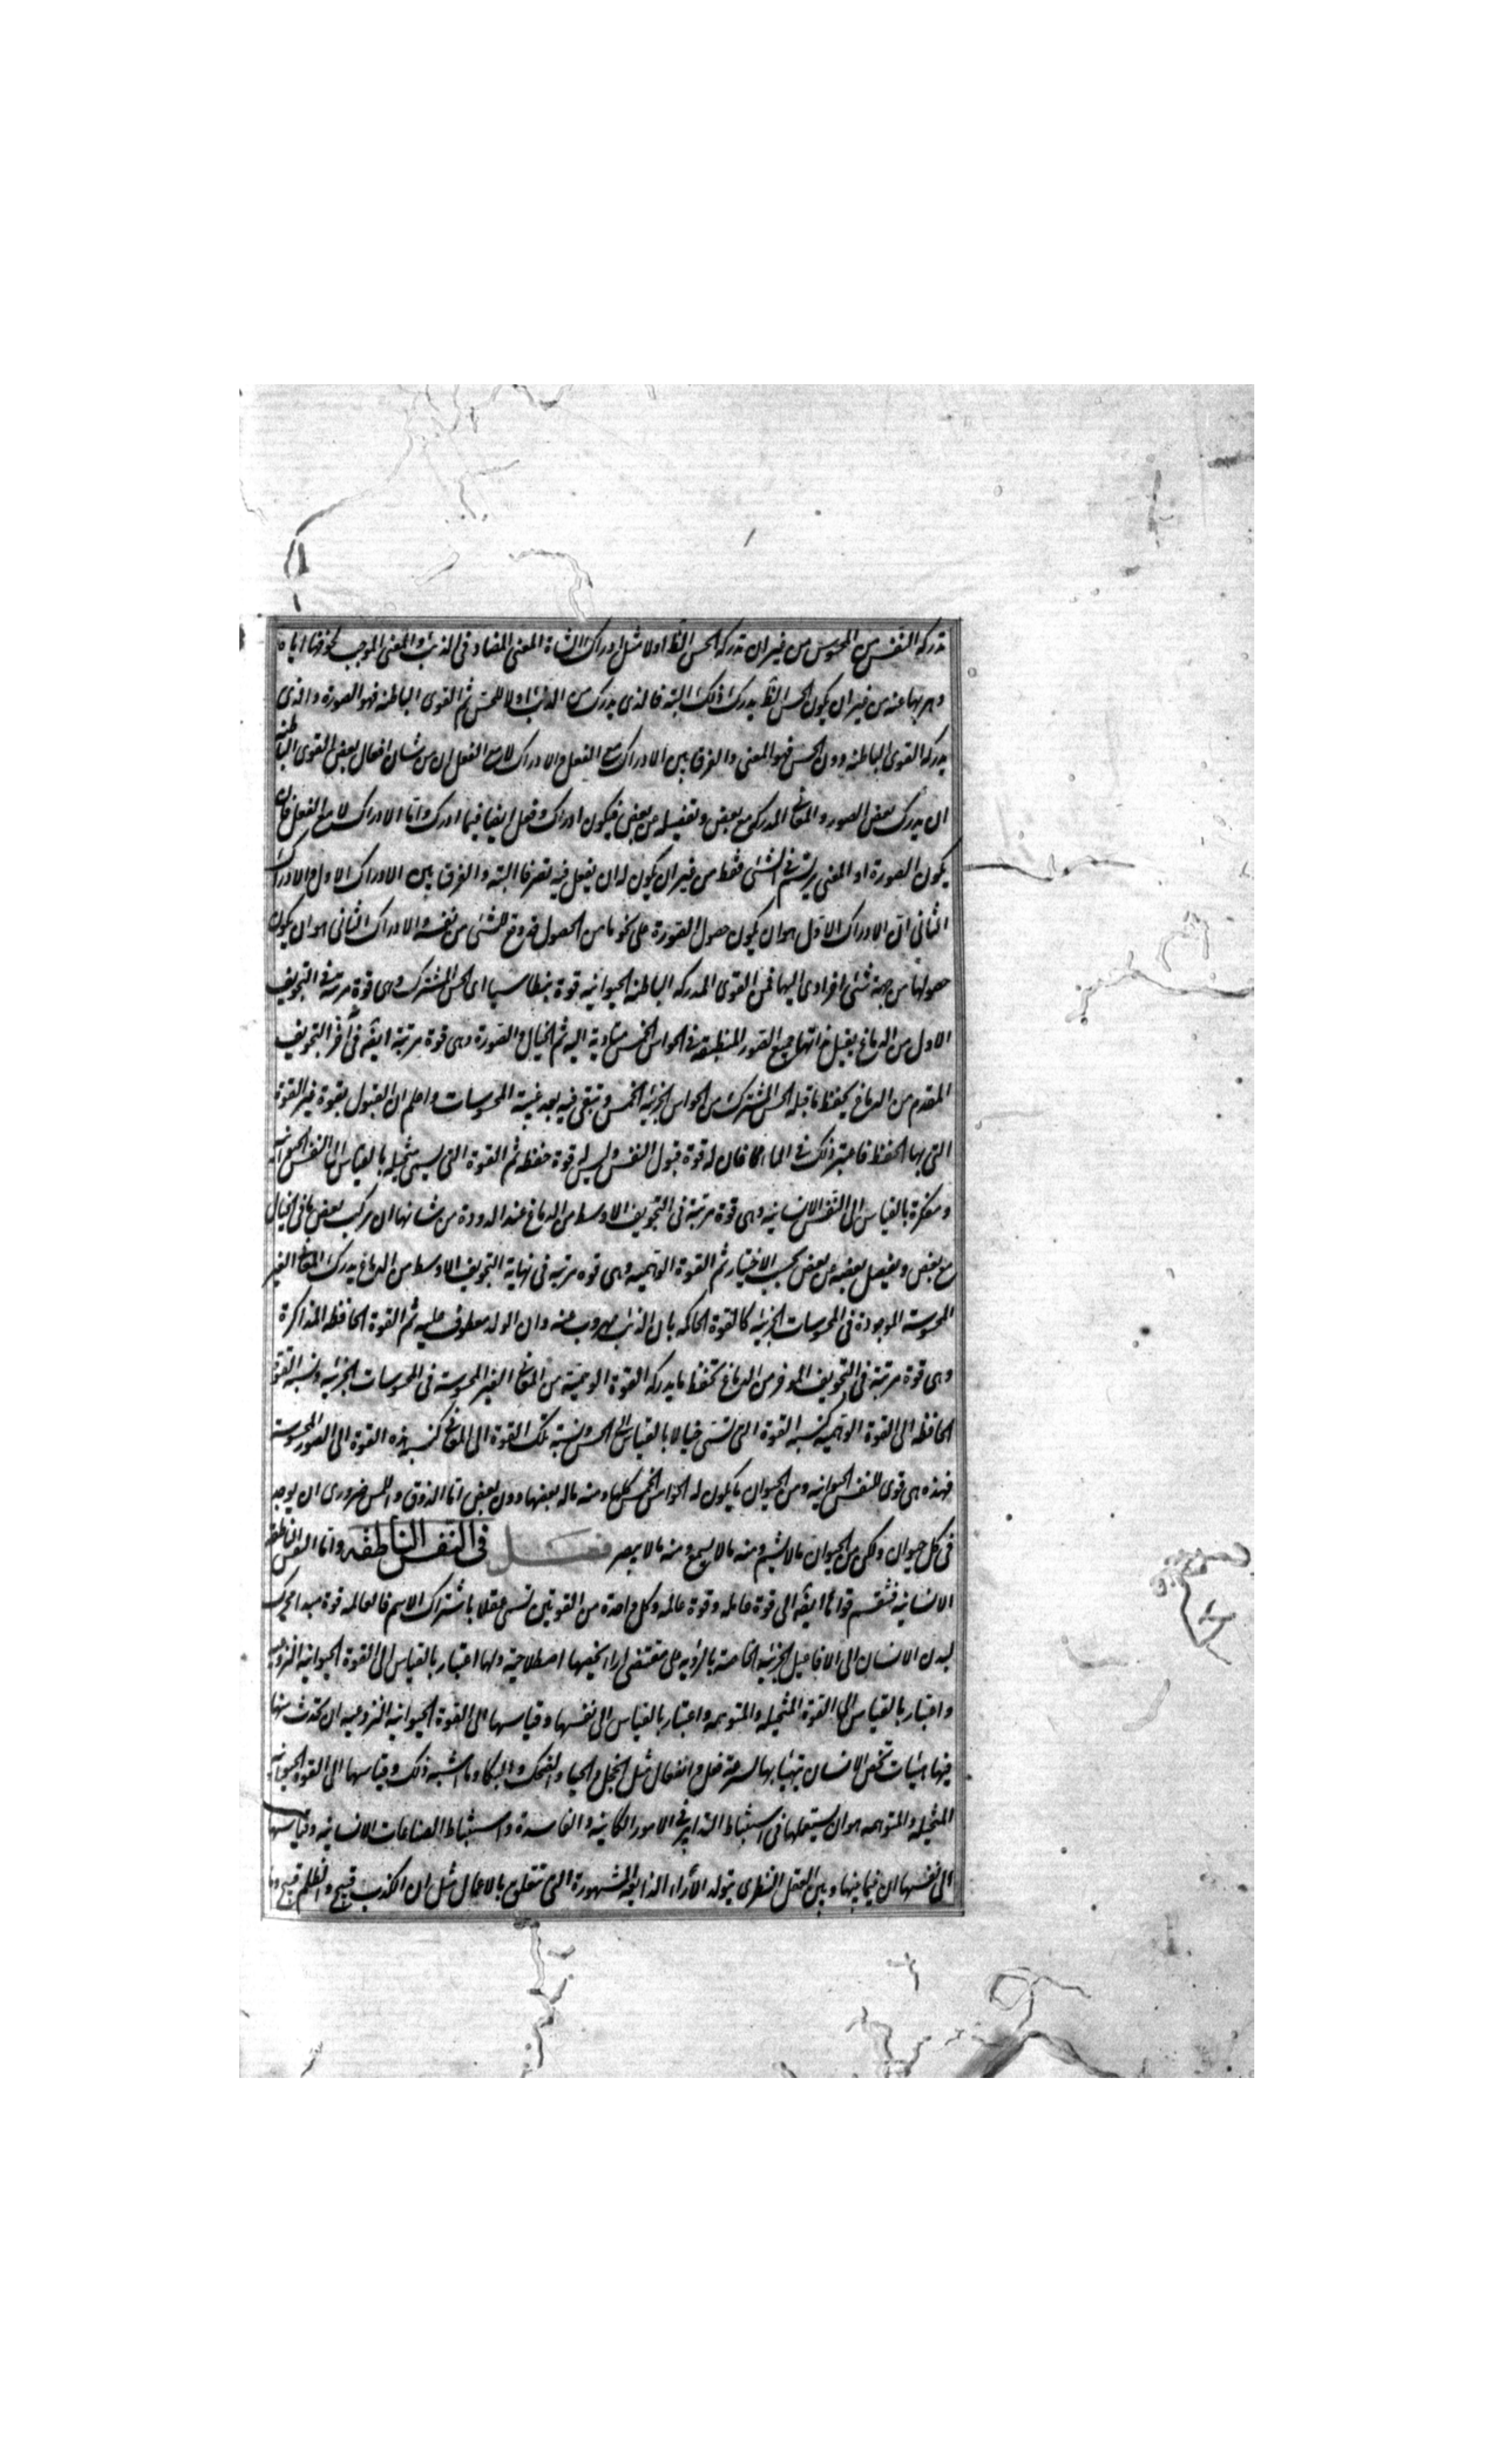 تدركه النفس من المحسوس من غير ان تدركه الحس الظ اولا مثل ادراك الشاة المعنى المضاد فى الذئب والمعنى الموجب لخوفها اياه
وهربها عنه من غير ان يكون الحس الظ يدرك ذلك البتة فالذى يدرك من الذئب اولا للحس ثم القوى الباطنة فهو الصورة والذى
يدركه القوى الباطنة دون الحس فهو المعنى والفرق بين الادراك مع الفعل والادراك لا مع الفعل ان من شان افعال بعض القوى الباطنه
ان يدرك بعض الصور والمعانى المدركة مع بعض وتفصيله عن بعض فيكون ادراك وفعل ايضا فيما ادرك واما الادراك لا مع الفعل فان
يكون الصورة او المعنى يرتسم فى الشئ فقط من غير ان يكون له ان يفعل فيه تصرفا البتة والفرق بين الادراك الاول والادراك
الثانى ان الادراك الاول هو ان يكون حصول الصورة على نحو ما من الحصول قد وقع للشئ من نفسه والادراك الثانى هو ان يكون
حصولها من جهة شئ اخر ادى اليها فمن القوى المدركة الباطنة الحيوانية قوة بنطاسيا اى الحس المشترك وهى قوة مرتبة فى التجويف
الاول من الدماغ يقبل بذاتها جميع الصور المنطبعة فى الحواس الخمس متادية اليه ثم الخيال والصورة وهى قوة مرتبة ايضه فى آخر التجويف
المقدم من الدماغ يحفظ ما قبله الحس المشترك من الحواس الجزئية الخمس وتبقى فيه بعد غيبة المحسوسات واعلم ان القبول بقوة غير القوة
التى بها الحفظ فاعتبر ذلك فى الماء فان له قوة قبول النقش وليس له قوة حفظه ثم القوة التى يسمى متخيلة بالقياس الى النفس الحيوانية
ومفكرة بالقياس الى النفس الانسانية وهى قوة مرتبة فى التجويف الاوسط من الدماغ عند الدودة من شانها ان تركب بعض ما فى الخيال
مع بعض ويفصل بعضه عن بعض بحسب الاختيار ثم القوة الوهمية وهى قوه مرتبه فى نهاية التجويف الاوسط من الدماغ يدرك المعانى الغير
المحسوسة الموجودة فى المحسوسات الجزئية كالقوة الحاكمة بان الذئب مهروب عنه وان الولد معطوف عليه ثم القوة الحافظة المذاكرة
وهى قوة مرتبة فى التجويف المؤخر من الدماغ تحفظ ما يدركه القوة الوهمية من المعانى الغير المحسوسة فى المحسوسات الجزئية ونسبة القوة
الحافظة الى القوة الوهمية كنسبة القوة التى تسمى خيالا بالقياس الى الحس ونسبة تلك القوة الى المعانى كنسبة هذه القوة الى الصور المحسوسة
فهذه هى قوى للنفس الحيوانية ومن الحيوان ما يكون له الحواس الخمس كلها ومنه ماله بعضها دون بعض اما الذوق واللمس ضرورى ان يوجد
فى كل حيوان ولكن من الحيوان مالا يشم ومنه مالا يسمع ومنه مالا يبصر فصــل فى النفس الناطقه واما النفس الناطقة
الانسانية فتنقسم قواها ايضه الى قوة عامله وقوة عالمه وكل واحدة من القوتين تسمى عقلا باشتراك الاسم فالعالمة قوة مبدا محرك
لبدن الانسان الى الافاعيل الجزئية الخاصة بالروية على مقتضى اراء تخصها اصطلاحية ولها اعتبار بالقياس الى القوة الحيوانية النزوعيه
واعتبار بالقياس الى القوة المتخيلة والمتوهمة واعتبار بالقياس الى نفسها وقياسها الى القوة الحيوانية النزوعيه ان تحدث منها
فيها هيئات تخص الانسان يتهيأ بها لسرعة فعل وانفعال مثل الخجل والحياء والضحك والبكاء وما اشبه ذلك وقياسها الى القوة الحيوانية
المتخيلة والمتوهمه هو ان يستعملها فى استنباط التدابير فى الامور الكاينة والفاسدة واستنباط الصناعات الانسانية وقياسها
الى نفسها ان فيما بينها وبين العقل النظرى يتولد الآراء الذايعة المشهورة التى تتعلق بالاعمال مثل ان الكذب قبيح والظلم قبيح وما